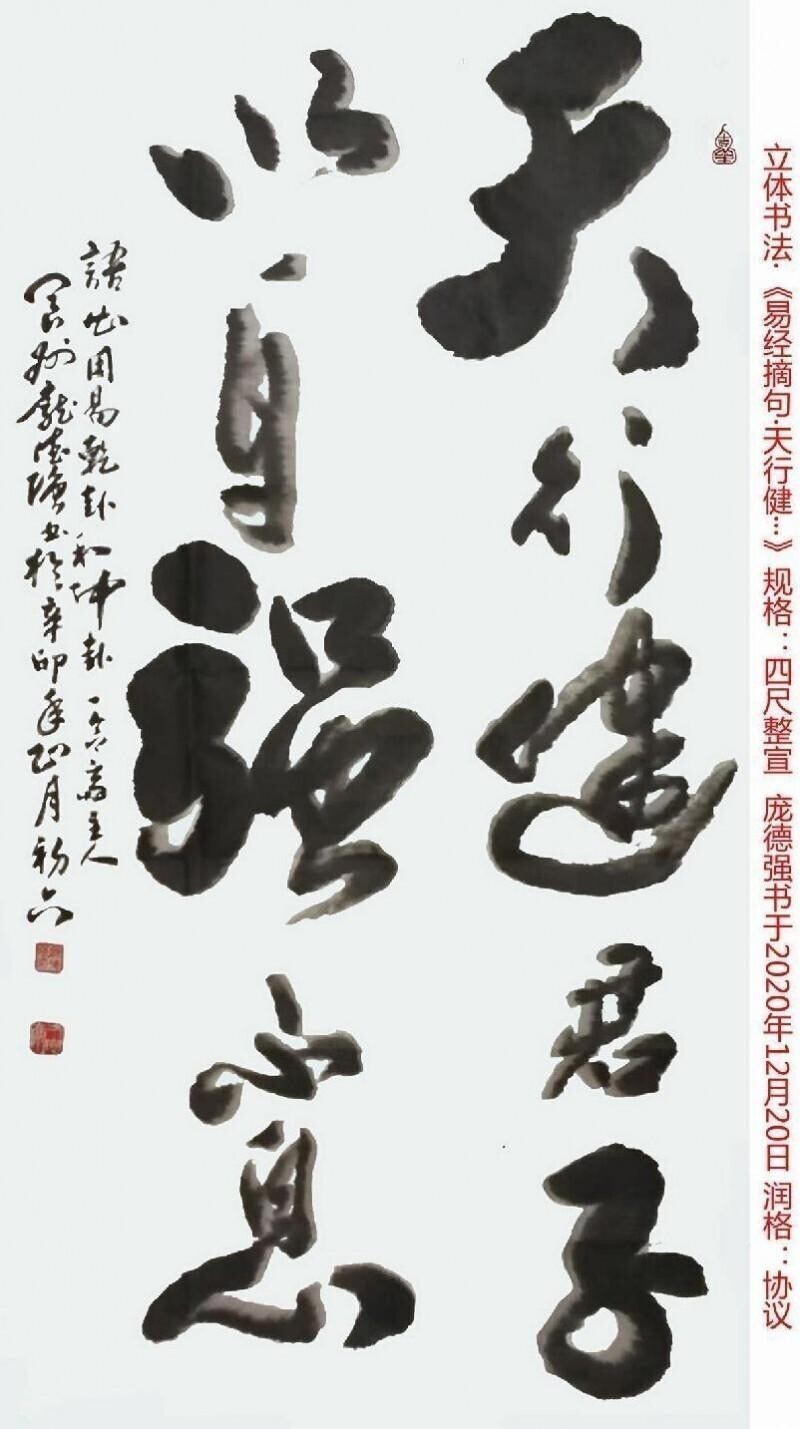 立体书法·《易经摘句·天行健…》规格：四尺整宣 庞德强书于2020年12月20日 润格：协议
天行健君子
以自强不息
語出周易乾卦和坤卦 主人
龐德强书於辛卯年正月初六